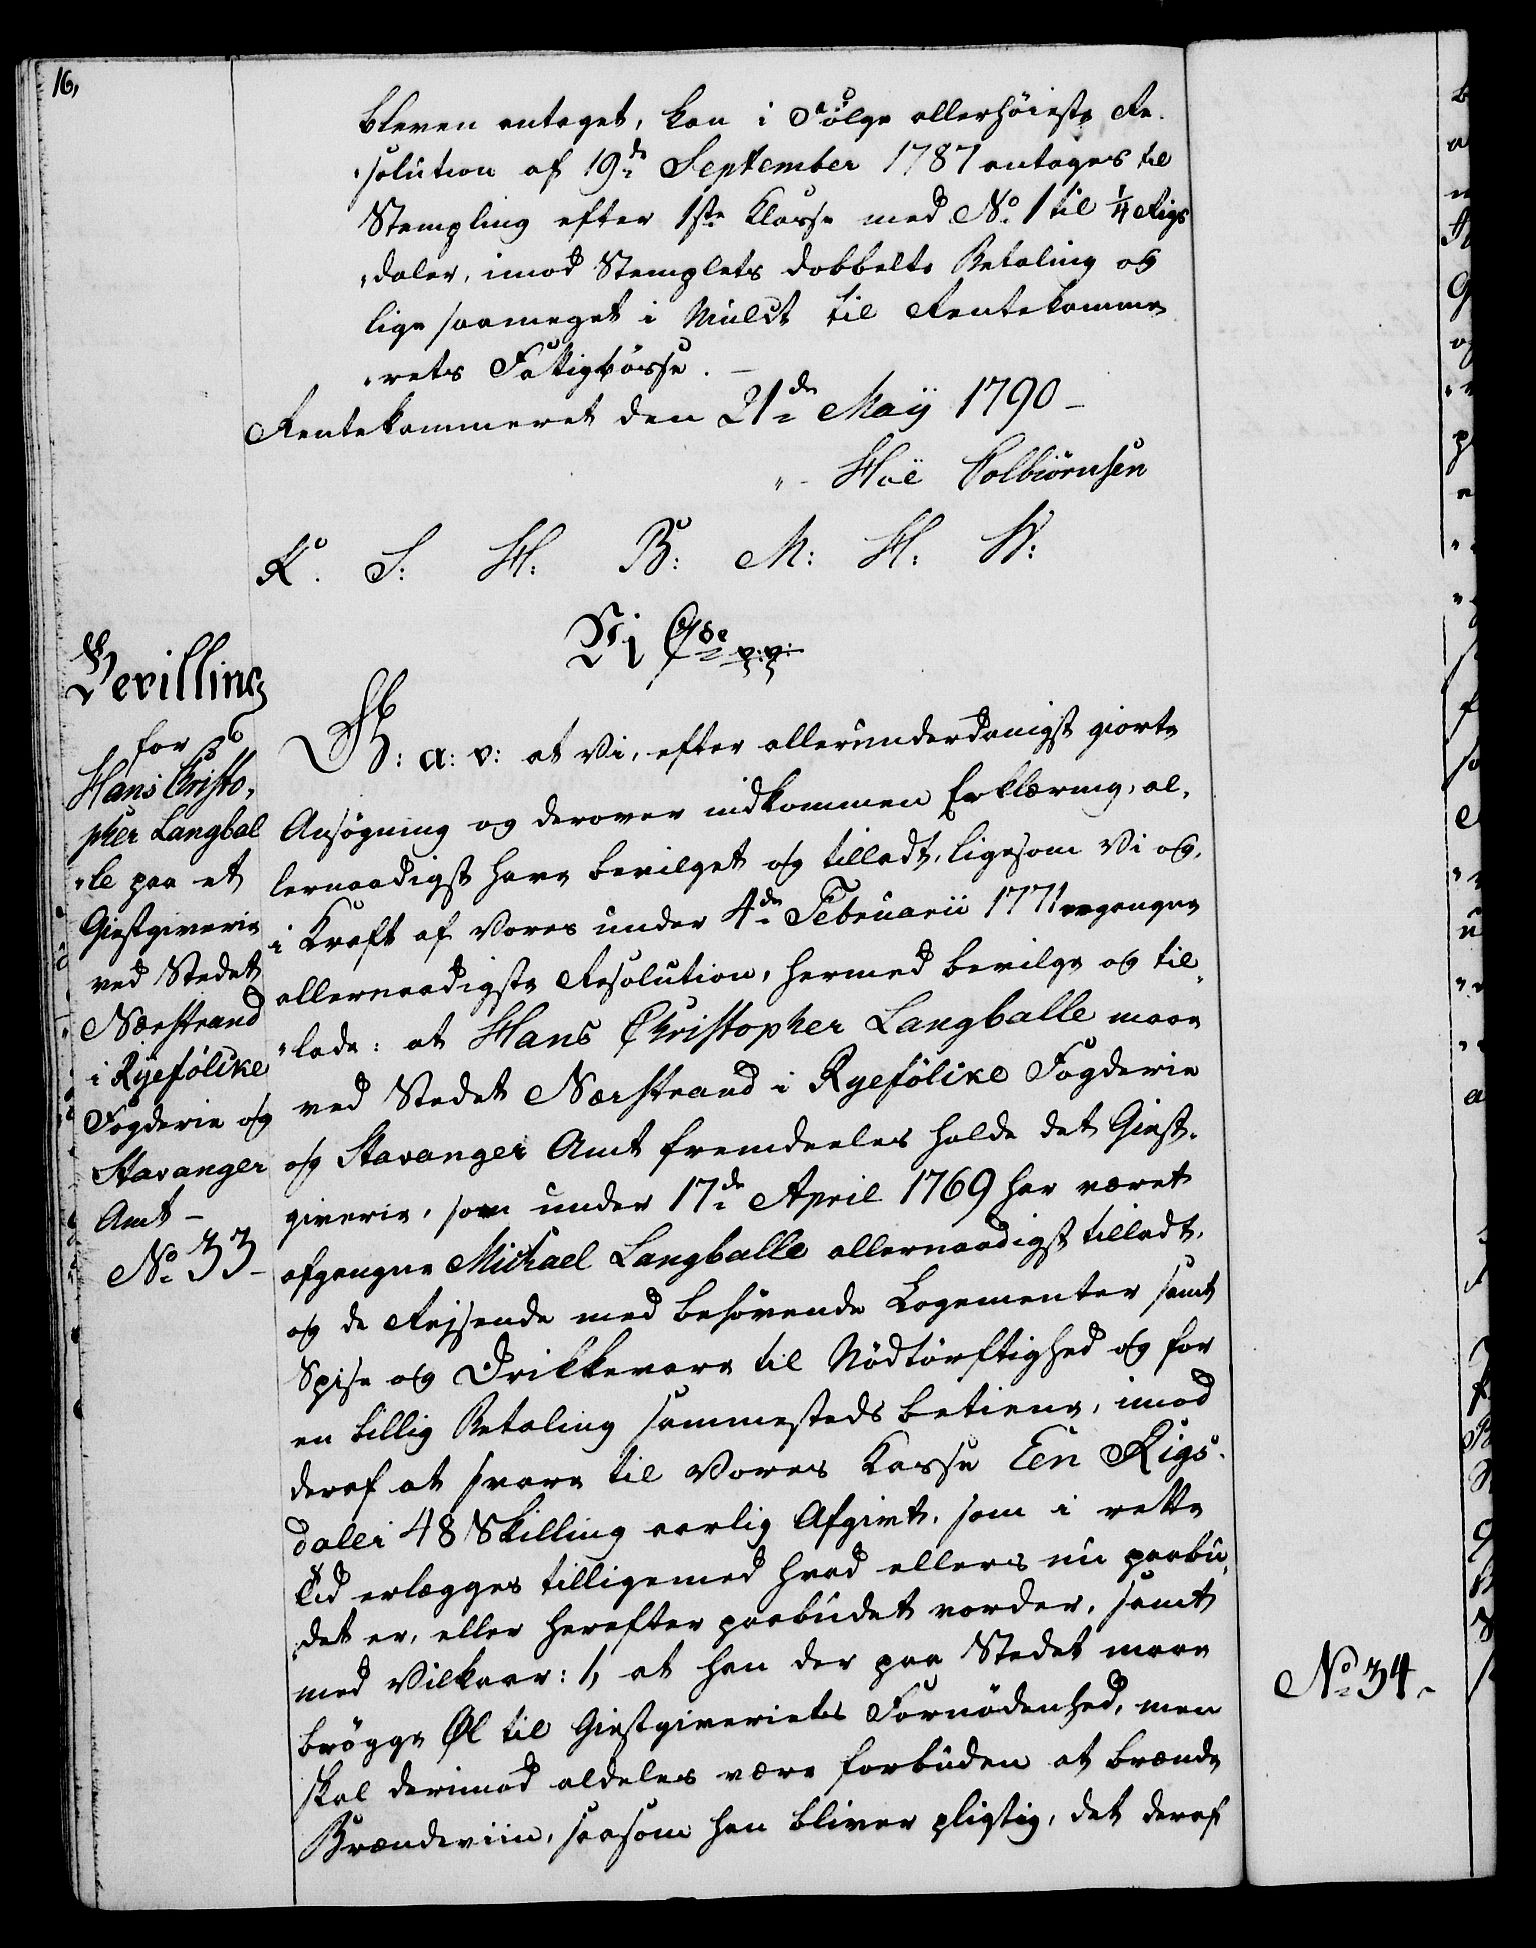 16,
bleven antaget, kan i Følge allerhøieste Re-
solution af 19de September 1787 antages til
Stempling efter 1ste Klasse med No. 1 til 1/4 Rigs
daler, imod Stemplets dobbelte Betaling og
lige saameget i Mulct til Rentekamme
rets Fattigbösse. —
Rentekammeret den 21de Maÿ 1790 —
Hoë Colbiörnsen
K. S: H: B: M: H: W:
Vi C 7de
Bevilling
for
Hans Christo,
pher Langbal
le paa et
Giestgiverie
ved Stedet
Nærstrand
i Ryefölike
Fogderie og
Stavanger
Amt —
No 33 —
G: a: v: at Vi, efter allerunderdanigst giorte
Ansøgning og derover indkommen Erklæring, al,
lernaadigst have bevilget og tilladt, ligesom Vi og,
i Kraft af Vores under 4de Februarii 1771 ergangne
allernaadigste Resolution, hermed bevilge og til
lade: at Hans Christopher Langballe maae
ved Stedet Nærstrand i Ryefölike Fogderie
og Stavanger Amt fremdeeles holde det Giest-
giverie, som under 17de April 1769 har været
afgangne Michael Langballe allernaadigst tilladt,
og de Rejsende med behövende Logementer samt
Spise og Drikkevare til Nödtörftighed og for
en billig Betaling sammesteds betiene, imod
deraf at svare til Vores Kasse Een Rigs-
daler 48 Skilling aarlig Afgivt, som i rette
Tid erlægges tilligemed hvad ellers nu paabu,
det er, eller herefter paabudet vorder, samt
med Vilkaar: 1, at han der paa Stedet maae
brögge Øl til Giestgiveriets Fornödenhed, men
skal derimod aldeles være forbuden at brænde
Brændeviin, saasom han bliver pligtig, det deraf
No 34 -